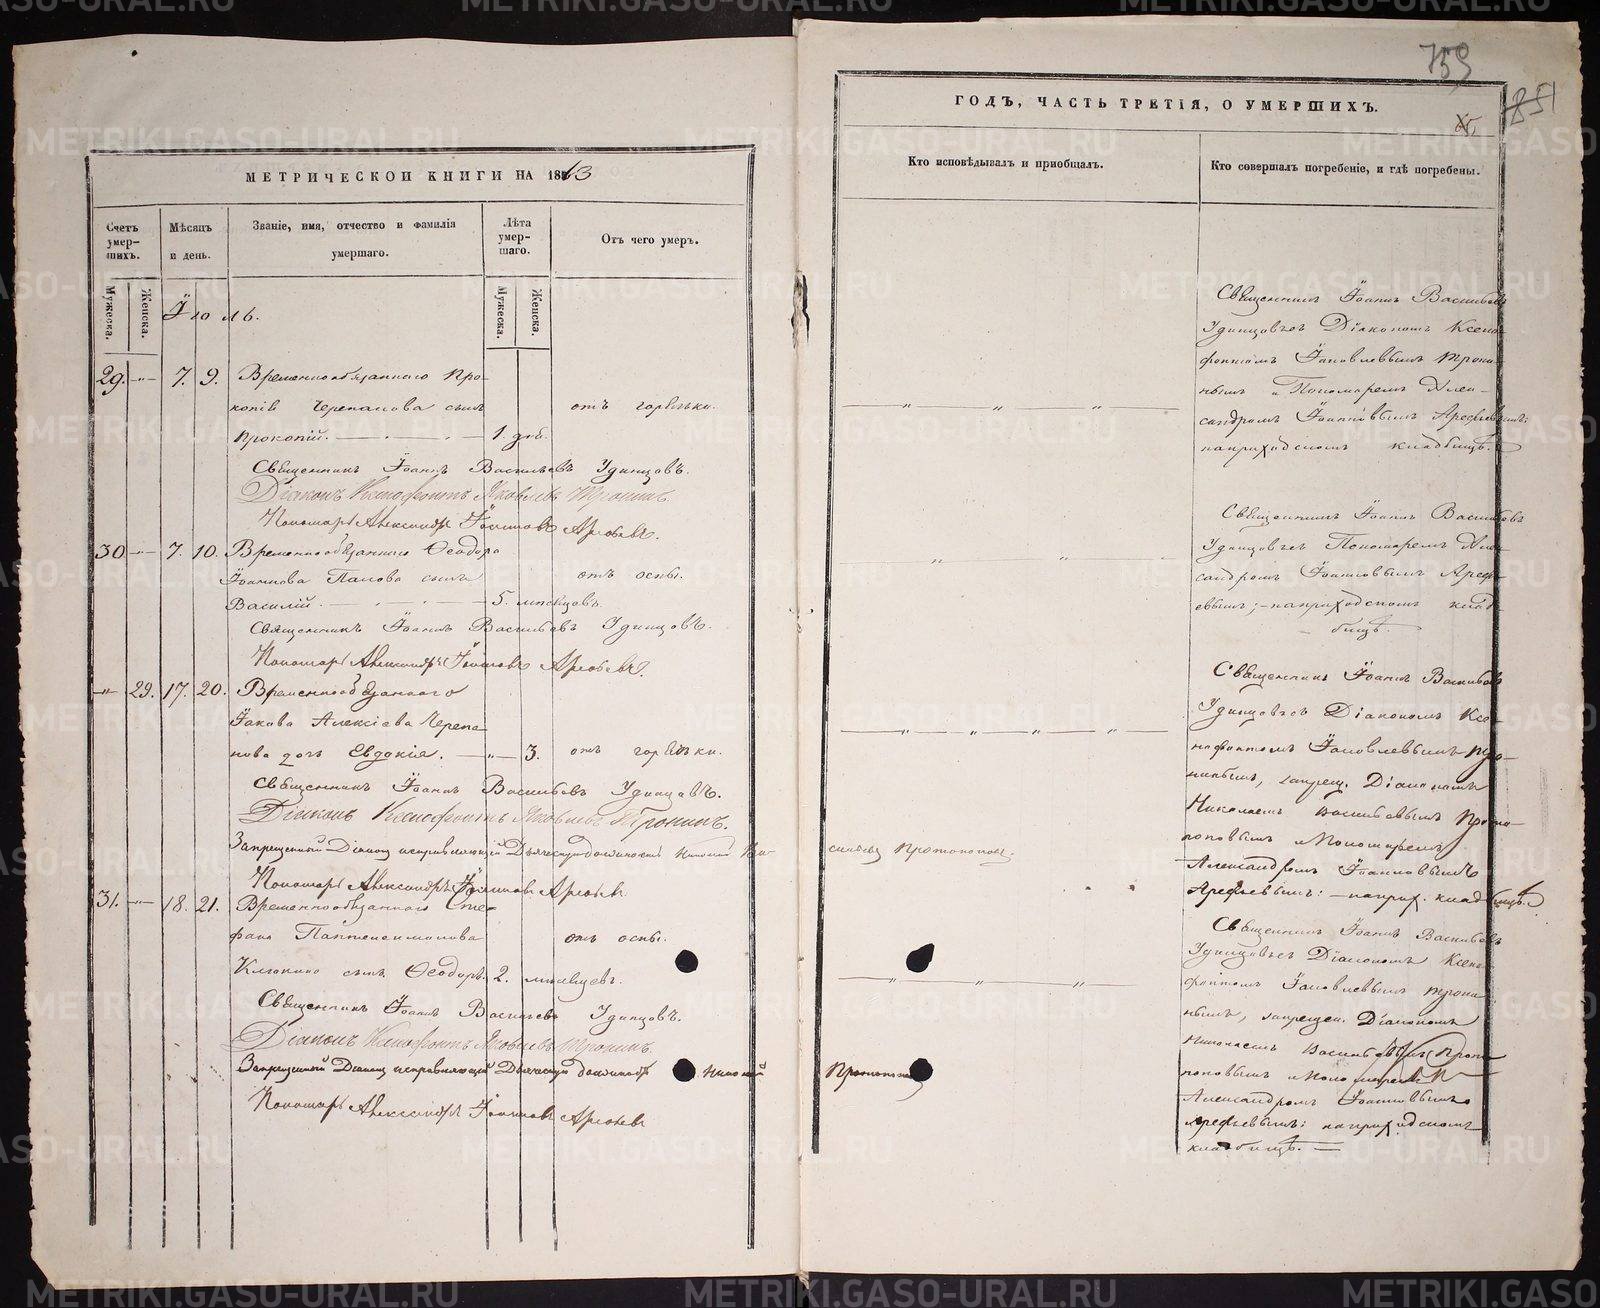 МЕТРИЧЕСКОЙ КНИГИ НА 1863
Счетъ умер-шихъ.
Мужеска.
Женска.
Мѣсяцъ и день.
Званіе, имя, отчество и фамилія умершаго.
Лѣта умер-шаго.
Мужеска.
Женска.
Отъ чего умеръ.
Іюль.
29. -"- 7. 9. Временнообязаннаго Про-
копія Черепанова сынъ отъ горячки.
Прокопій. 1. дн.
Священникъ Іоаннъ Васильевъ Удинцовъ.
Діаконъ Ксенофонтъ Яковлевъ Тронинъ.
Пономарь Александръ Іоанновъ Арефьевъ.
30 -"- 7. 10. Временнообязаннаго Ѳеодора
Іоаннова Панова сынъ отъ оспы.
Василій. 5. мѣсяцевъ.
Священникъ Іоаннъ Васильевъ Удинцовъ.
Пономарь Александръ Іоанновъ Арефьевъ.
-"- 29. 17. 20. Временнообязаннаго
Іакова Алексіева Черепа-
нова дочь Евдокія. -"- 3. отъ горячки.
Священникъ Іоаннъ Васильевъ Удинцовъ.
Діаконъ Ксенофонтъ Яковлевъ Тронинъ.
Запрещенный Діаконъ исправляющій Дьяческую должность Николай Ва-
Пономарь Александръ Іоанновъ Арефьевъ
31. -"- 18. 21. Временнообязаннаго Сте-
фана Пантелеимонова отъ оспы.
Клюкина сынъ Ѳеодоръ. 2. мѣсяцевъ.
Священникъ Іоаннъ Васильевъ Удинцовъ.
Діаконъ Ксенофонтъ Яковлевъ Тронинъ.
Запрещенный Діаконъ исправляющій Дьяческую должность Николай
Пономарь Александръ Іоанновъ Арефьевъ
759
851
ГОДЪ, ЧАСТЬ ТРЕТІЯ, О УМЕРШИХЪ.
Кто исповѣдывалъ и пріобщалъ.
Кто совершалъ погребеніе, и гдѣ погребены.
Священникъ Іоаннъ Васильевъ
Удинцовъ съ Діакономъ Ксено-
фонтомъ Іаковлевымъ Трони-
нымъ и Пономаремъ Алек-
сандромъ Іоанновымъ Арефьевымъ;
на приходскомъ кладбищѣ.
Священникъ Іоаннъ Васильевъ
Удинцовъ съ Пономаремъ Алек-
сандромъ Іоанновымъ Арефь-
евымъ; - на приходскомъ клад-
бищѣ.
Священникъ Іоаннъ Васильевъ
Удинцовъ съ Діакономъ Ксе-
нофонтомъ Іаковлевымъ Тро-
нинымъ, запрещ. Діакономъ
Николаемъ Васильевымъ Прото-
поповымъ и Пономаремъ
сильевъ Протопоповъ.
Александромъ Іоанновымъ
Арефьевымъ: - на прих. кладбищѣ.
Священникъ Іоаннъ Васильевъ
Удинцовъ съ Діакономъ Ксено-
фонтомъ Іаковлевымъ Трони-
нымъ, запрещен. Діакономъ
Николаемъ Васильевымъ Прото-
поповымъ и Пономаремъ
Протопоповъ
Александромъ Іоанновымъ
Арефьевымъ: на приходскомъ
кладбищѣ.
METRIKI.GASO-URAL.RU